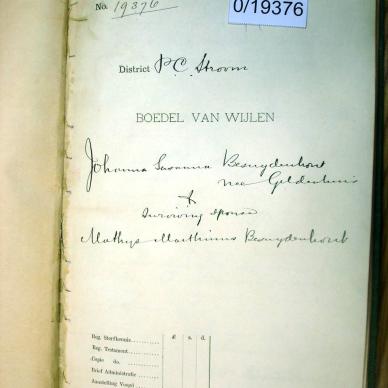 No. 19376
0/19376
District P.C. Stroom
BOEDEL VAN WIJLEN
Johanna Susanna Besuydenhout
nee Geldenhuis
&
surviving spouse
Mathys Marthinus Besuydenhout
£ s. d.
Reg. Sterfkennis
Reg. Testament
Copie do.
Brief Administratie
Aanstelling Voogd